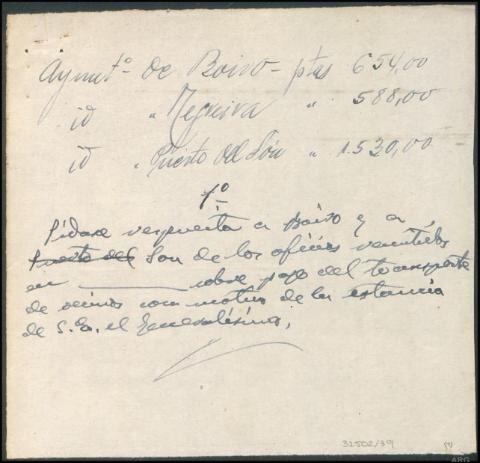 Aymtº de Boiro - ptas 654,00
id " Negreira " 588,00
id " Puerto del Són " 1.530,00
1º
Pídase respuesta a Boiro y a
Puerto del Son de los oficios remitidos
en ______ sobre pago del transporte
de vecinos con motivo de la estancia
de S.E. el Generalísimo.
31502/39
ARG